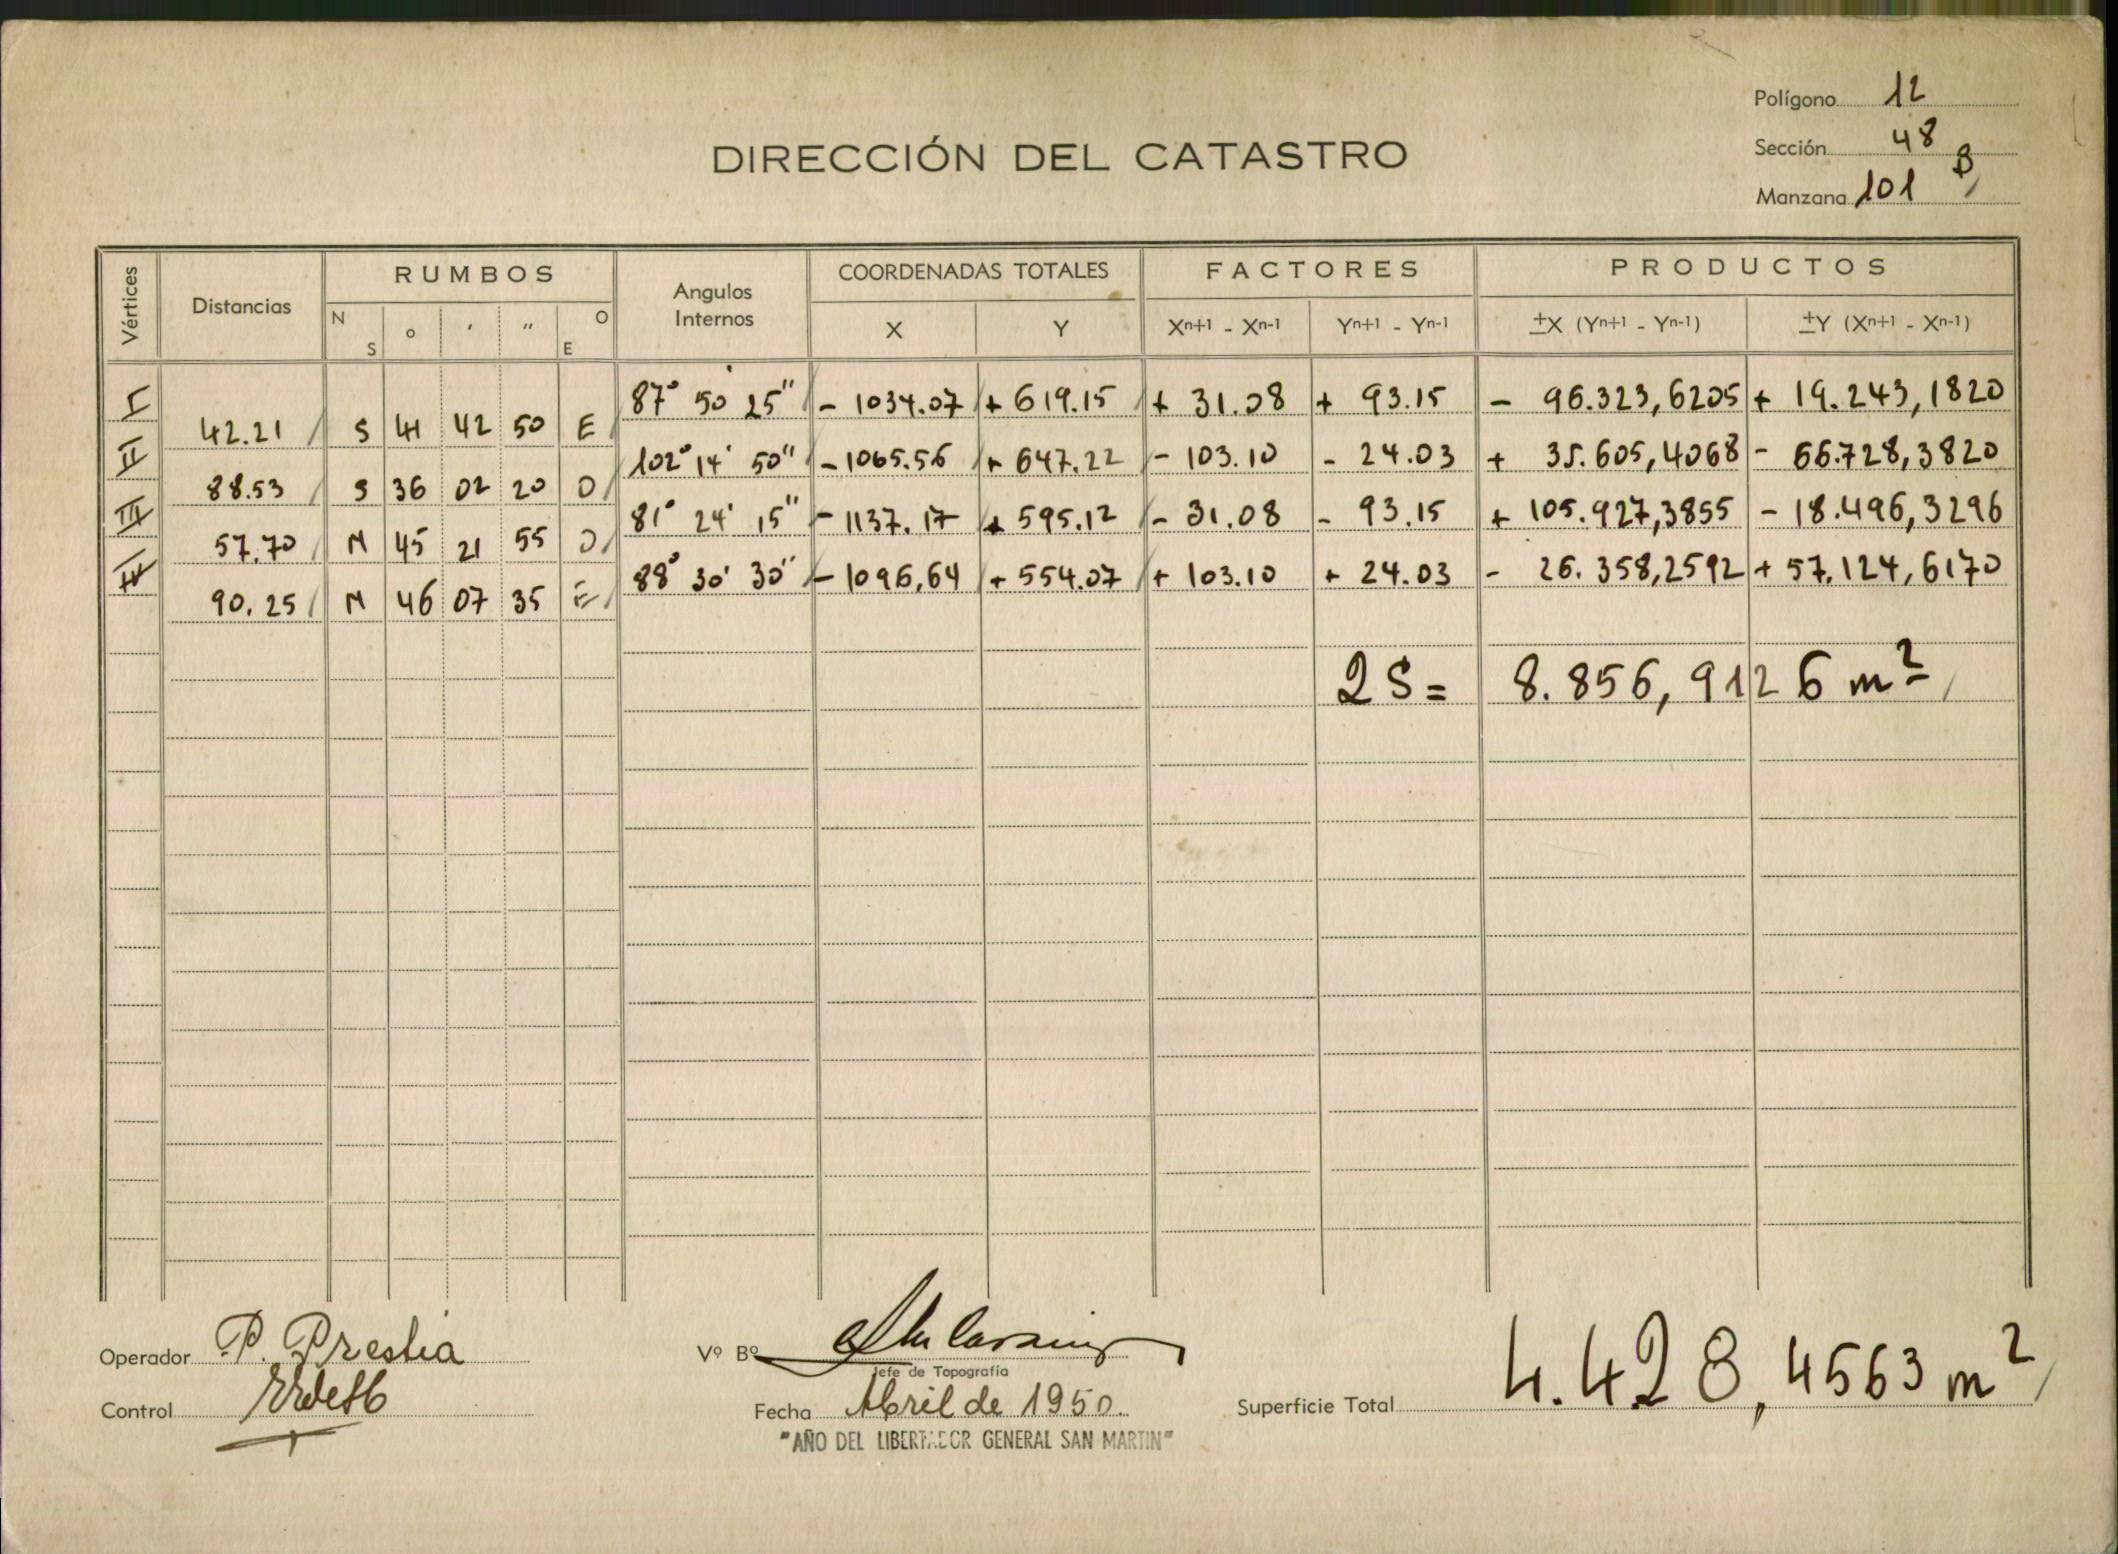 Polígono 12
DIRECCIÓN DEL CATASTRO
Sección 48 B
Manzana 101
Vértices Distancias RUMBOS Angulos Internos COORDENADAS TOTALES FACTORES PRODUCTOS
N S ° ′ ″ O E X Y Xn+1 - Xn-1 Yn+1 - Yn-1 ±X (Yn+1 - Yn-1) ±Y (Xn+1 - Xn-1)
I 87° 50' 25" - 1034.07 + 619.15 + 31.08 + 93.15 - 96.323,6205 + 19.243,1820
42.21 S 41 42 50 E
II 102° 14' 50" - 1065.56 + 647.22 - 103.10 - 24.03 + 25.605,4068 - 66.728,3820
88.53 S 36 02 20 O
III 81° 24' 15" - 1137.17 + 595.12 - 31.08 - 93.15 + 105.927,3855 - 18.496,3296
57.70 N 45 21 55 O
IV 88° 30' 30" - 1096,64 + 554.07 + 103.10 + 24.03 - 26.352,2592 + 57.124,6170
90.25 N 46 07 35 E
2 S = 8.856,9126 m²
Operador P. Prestia
Vº Bº
Jefe de Topografía
Control
Fecha Abril de 1950.
Superficie Total 4.428,4563 m²
"AÑO DEL LIBERTADOR GENERAL SAN MARTIN"